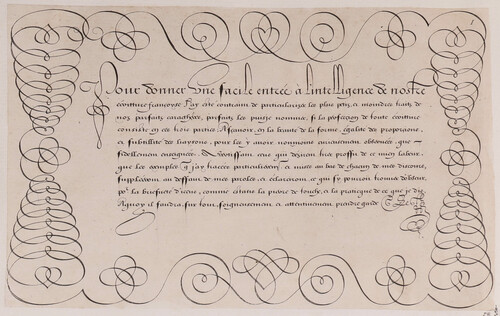 1
Pour donner vne facile entrée à l'intelligence de nostre
escriture françoyse J'ay esté contrainct de particularizer les plus petis et moindres traits de
nos parfaits caractheres, parfaits les puis-je nommer, si la perfection de toute escriture
consiste en ces trois parties Asçauoir, en la beauté de la forme, égalité des proporcions,
et subtillité des liaysons, pour les y auoir
fidellement enseignées. Aduertissant ceux qui desirent tirer proffit de ce mien labeur,
que les exemples q j'ay tracées particulieremt et mises au bas de chacun de mes discours,
suppleeront au deffaut de mes paroles, et éclairciront ce qui s'y pourroit trouuer d'obscur,
por la briefueté d'iceux, comme estans la pierre de touche, et la pratique de ce que je dis
Aquoy il faudra sur tout soigneusement et attentiuement prendre garde